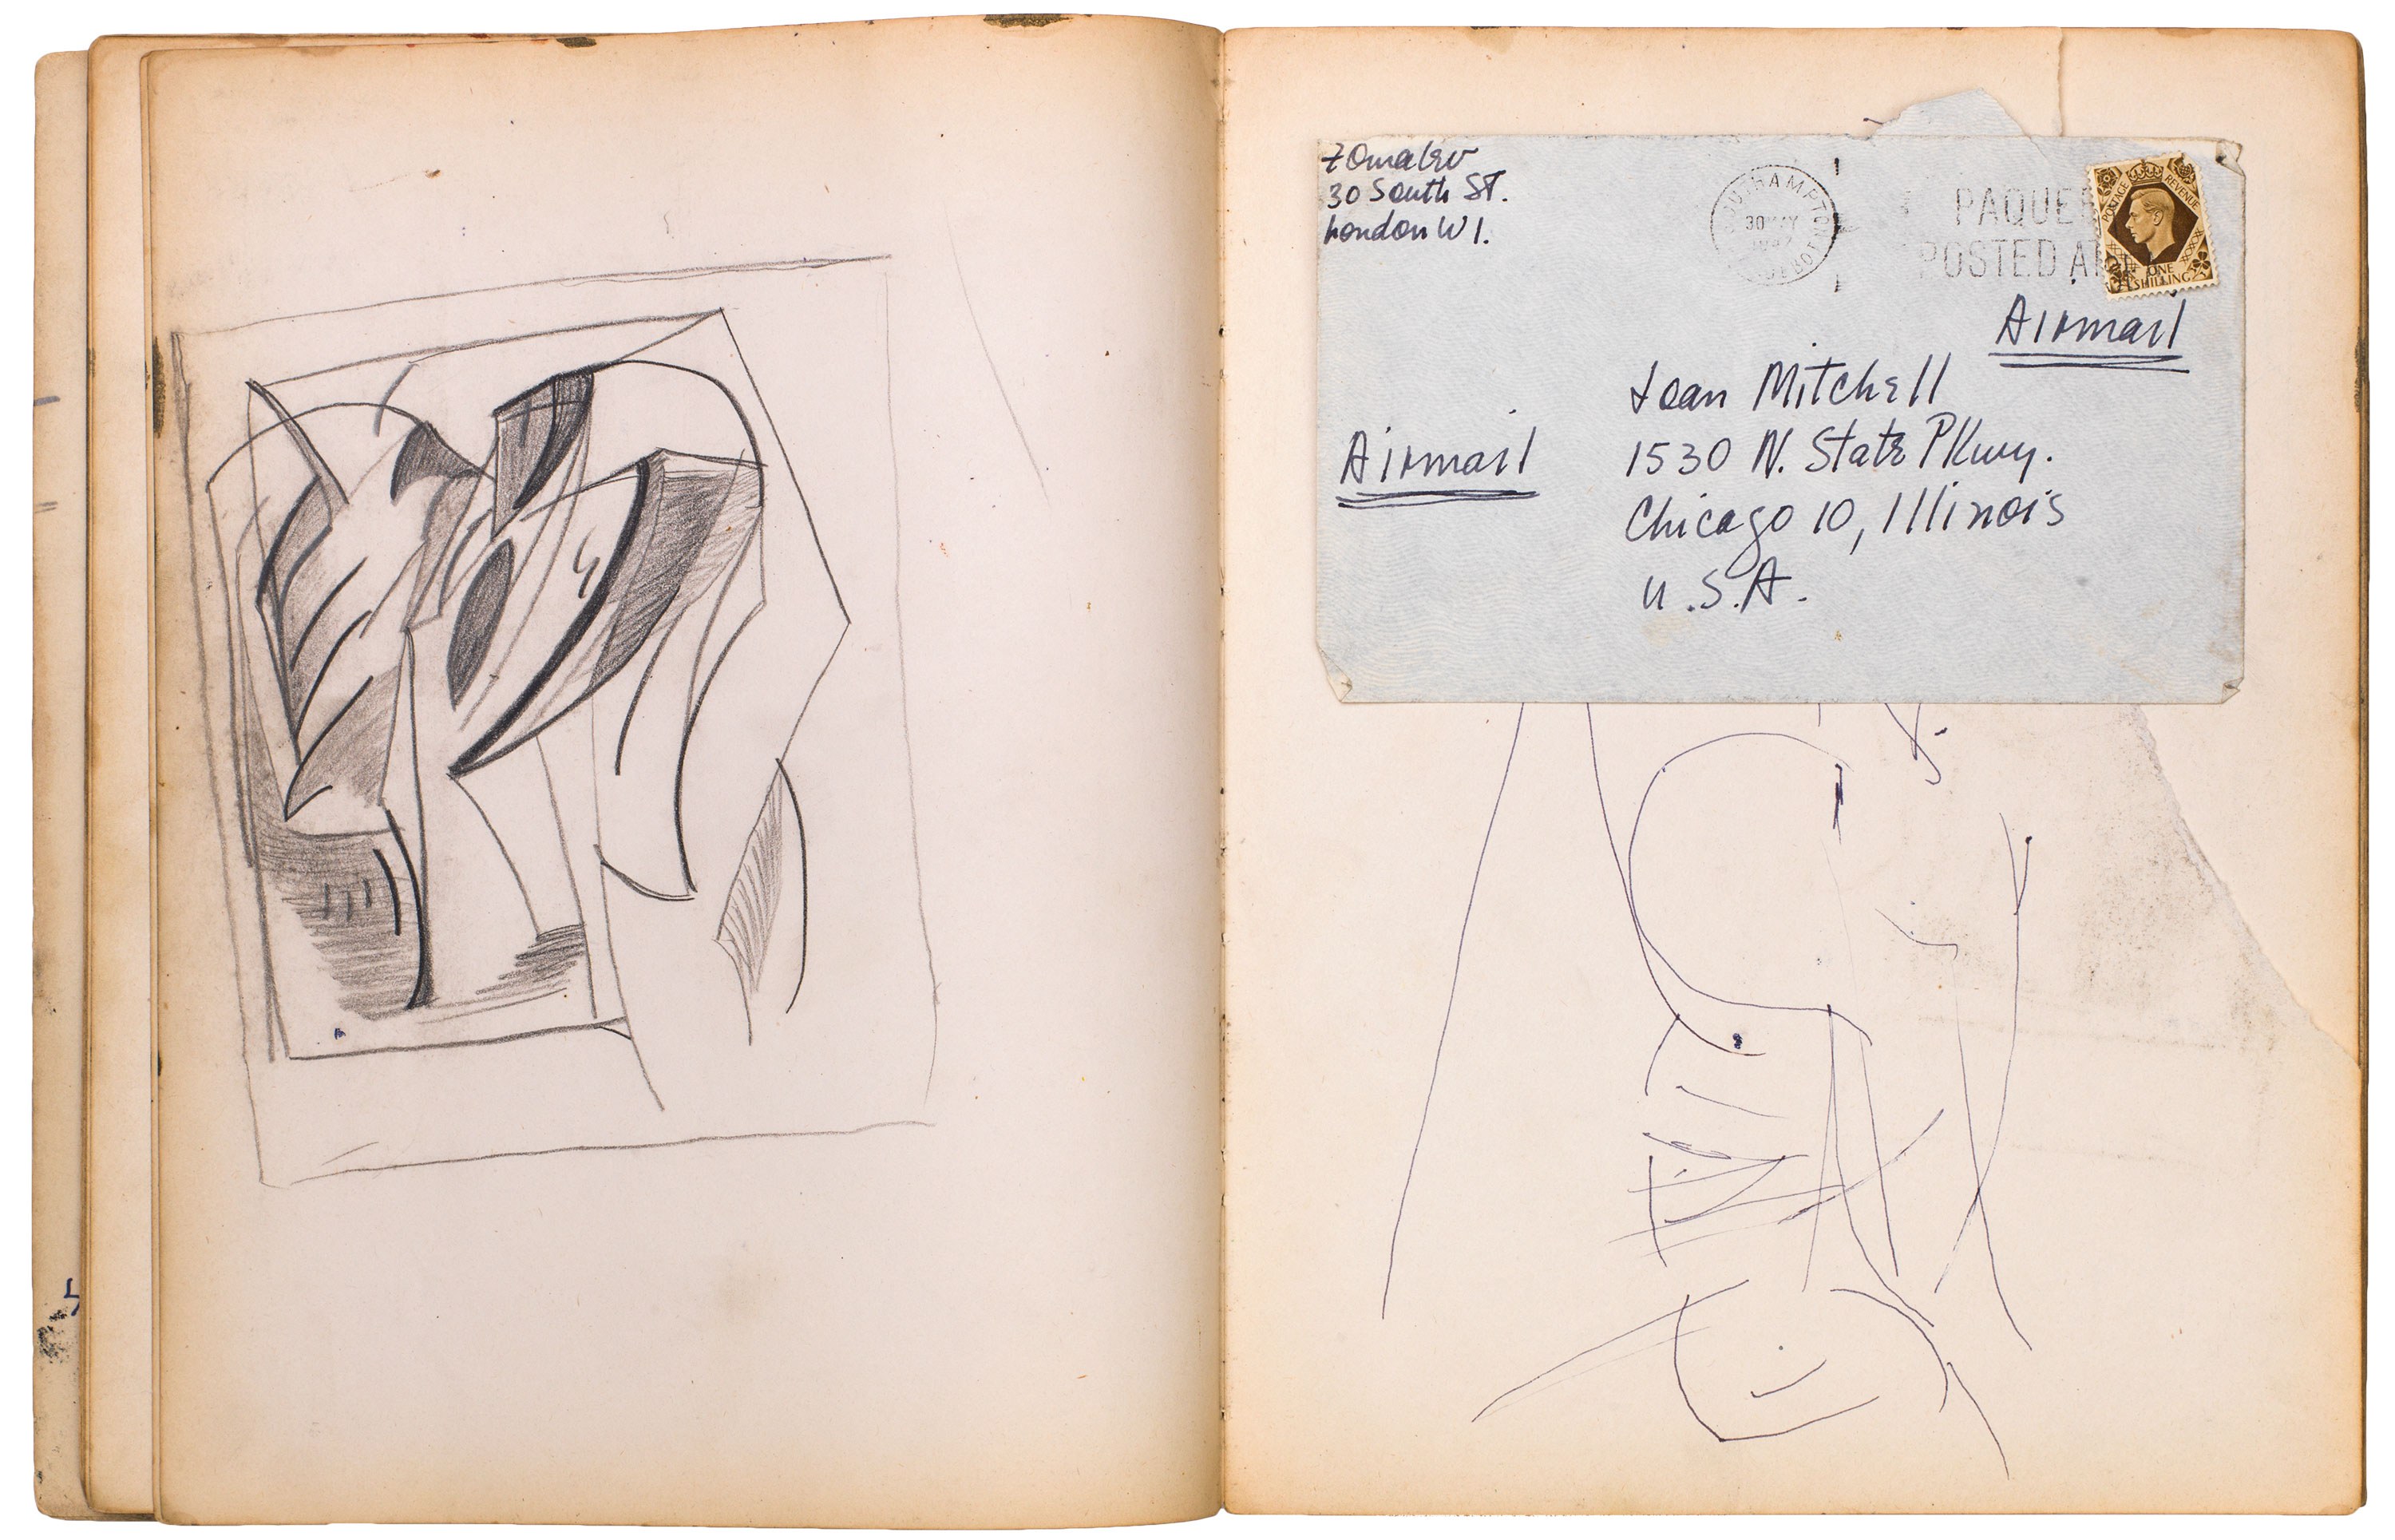 30 South St.
London W1.
SOUTHAMPTON
30 MY
PAQUEB
POSTED AT
POSTAGE REVENUE
ONE
SHILLING
Airmail
Joan Mitchell
1530 N. State Pkwy.
Airmail
Chicago 10, Illinois
U.S.A.